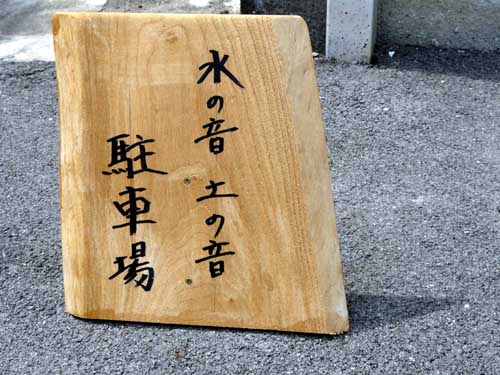 水の音 土の音
駐車場